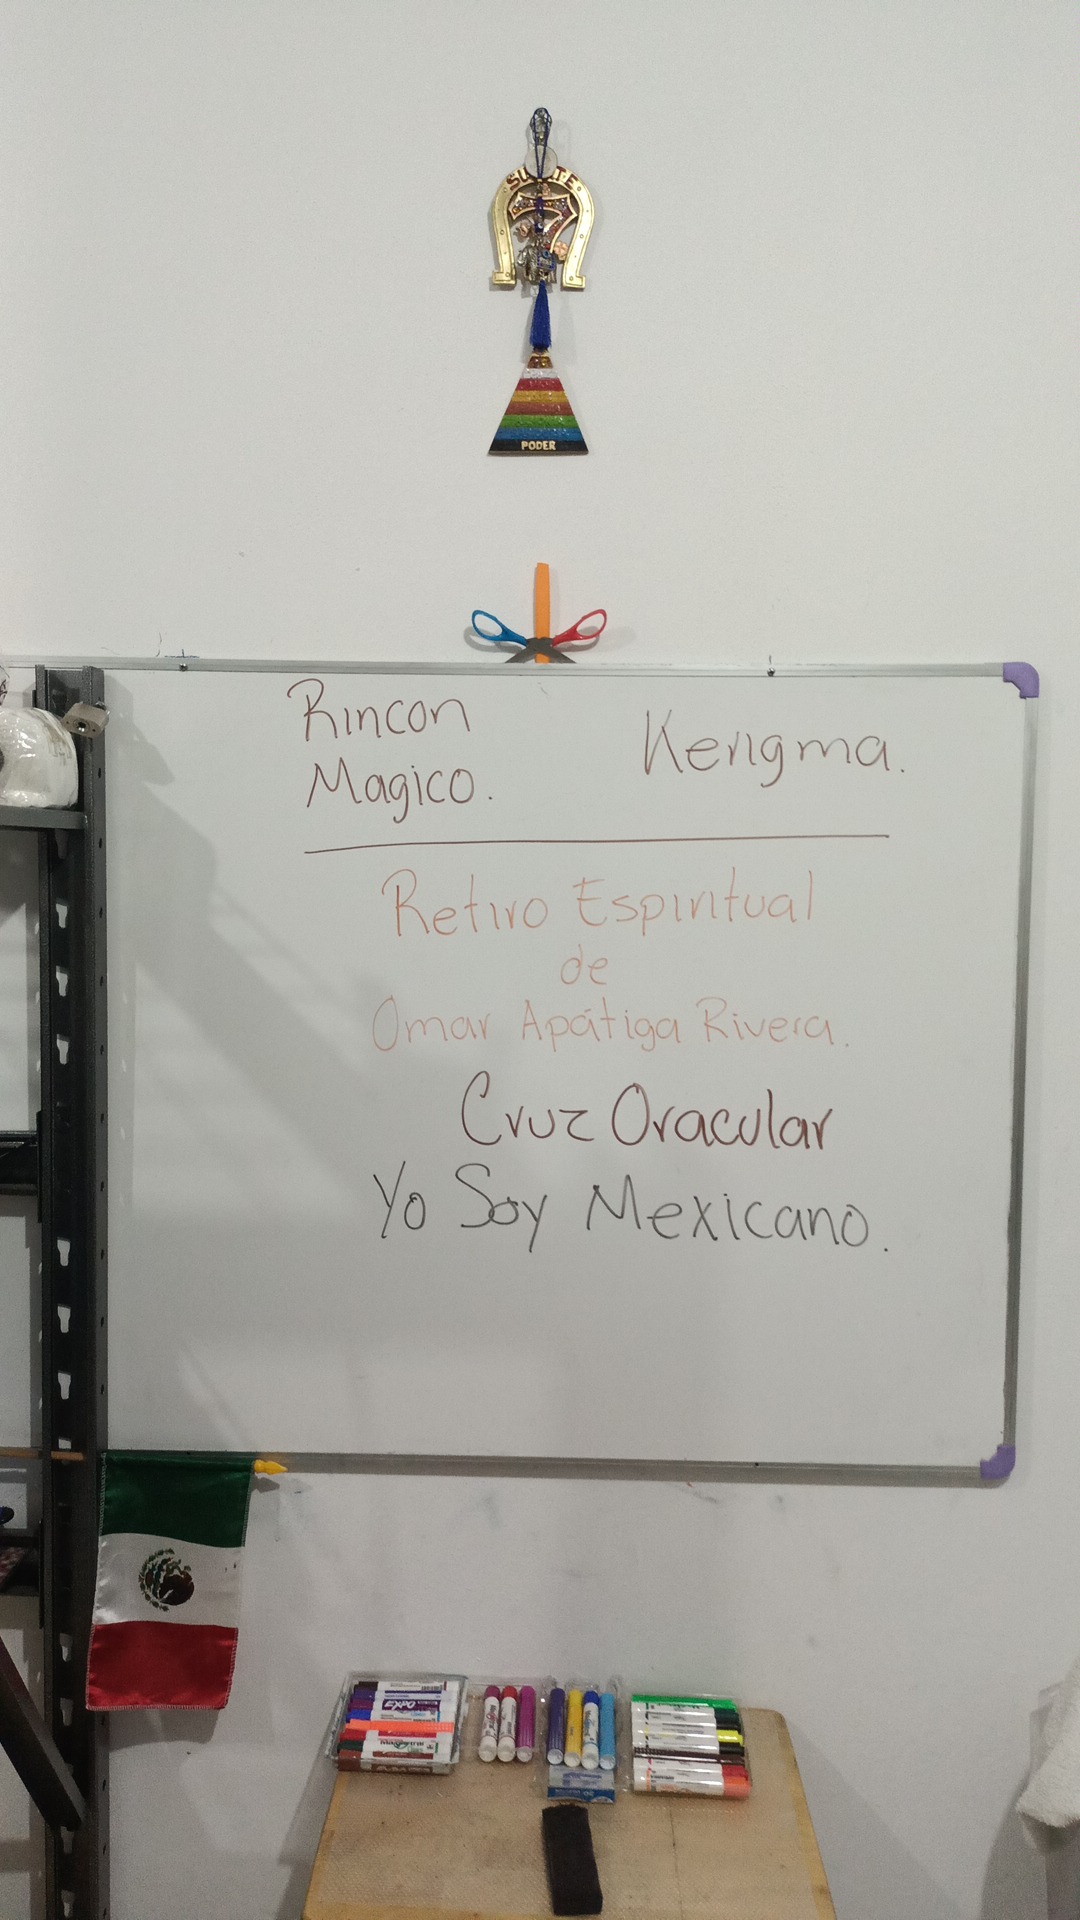 SUERTE
7
PODER
Rincon
Magico.
Kerigma.
Retiro Espiritual
de
Omar Apátiga Rivera.
Cruz Oracular
Yo Soy Mexicano.
EXPO